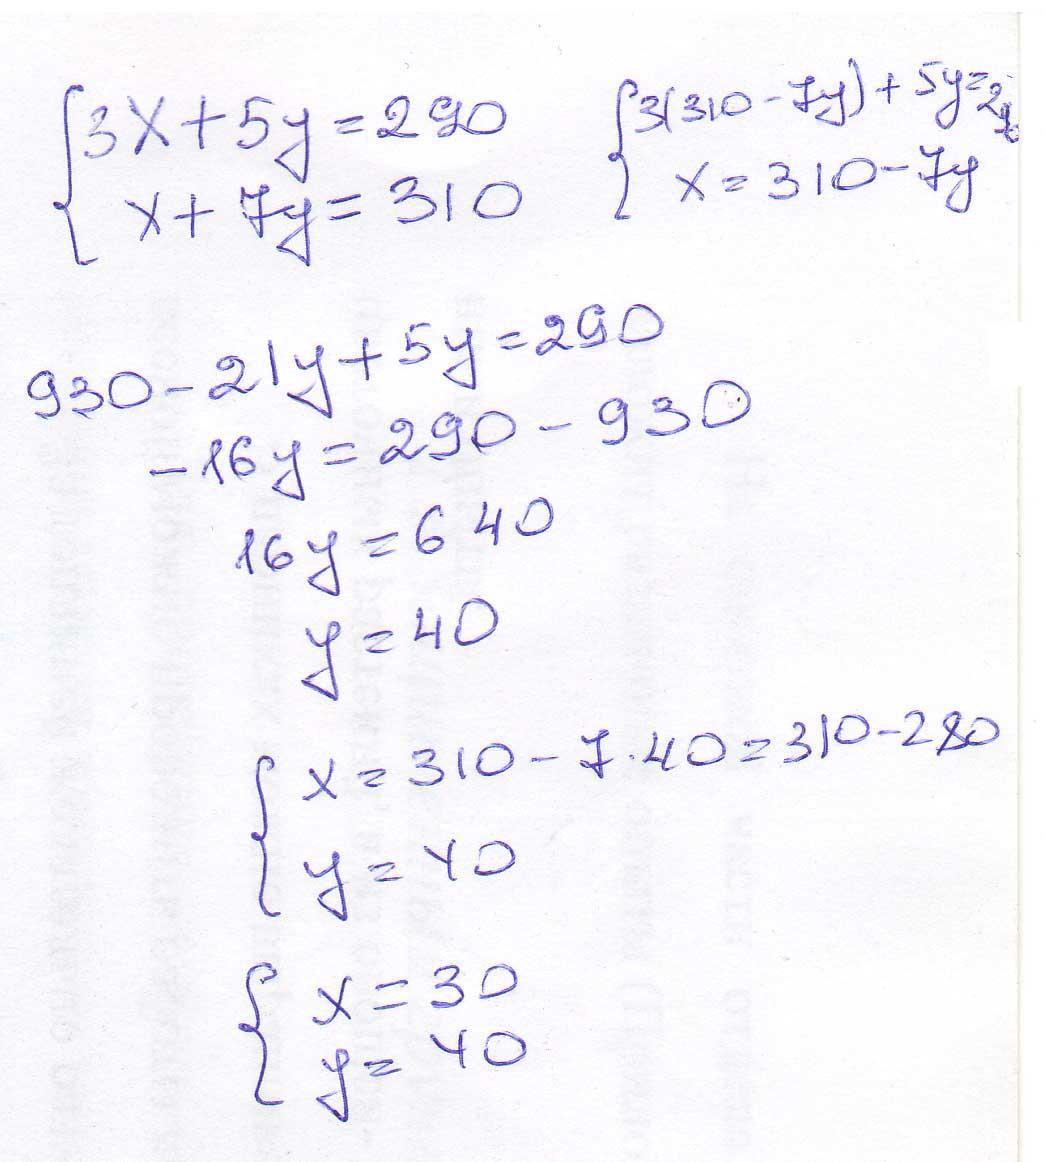 3x + 5y = 290
x + 7y = 310
3(310 - 7y) + 5y = 290
x = 310 - 7y
930 - 21y + 5y = 290
-16y = 290 - 930
16y = 640
y = 40
x = 310 - 7·40 = 310 - 280
y = 40
x = 30
y = 40